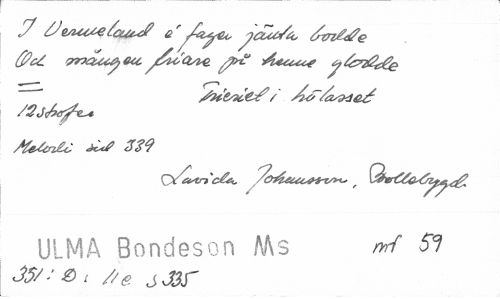 I Vermeland é fager jänta bodde
Och mången friare på henne glodde
=
Frieriet i hölasset
12 strofer
Melodi sid 339
Lovida Johansson, Bollebygd
ULMA Bondeson Ms mf 59
351: D: 11 e s 335